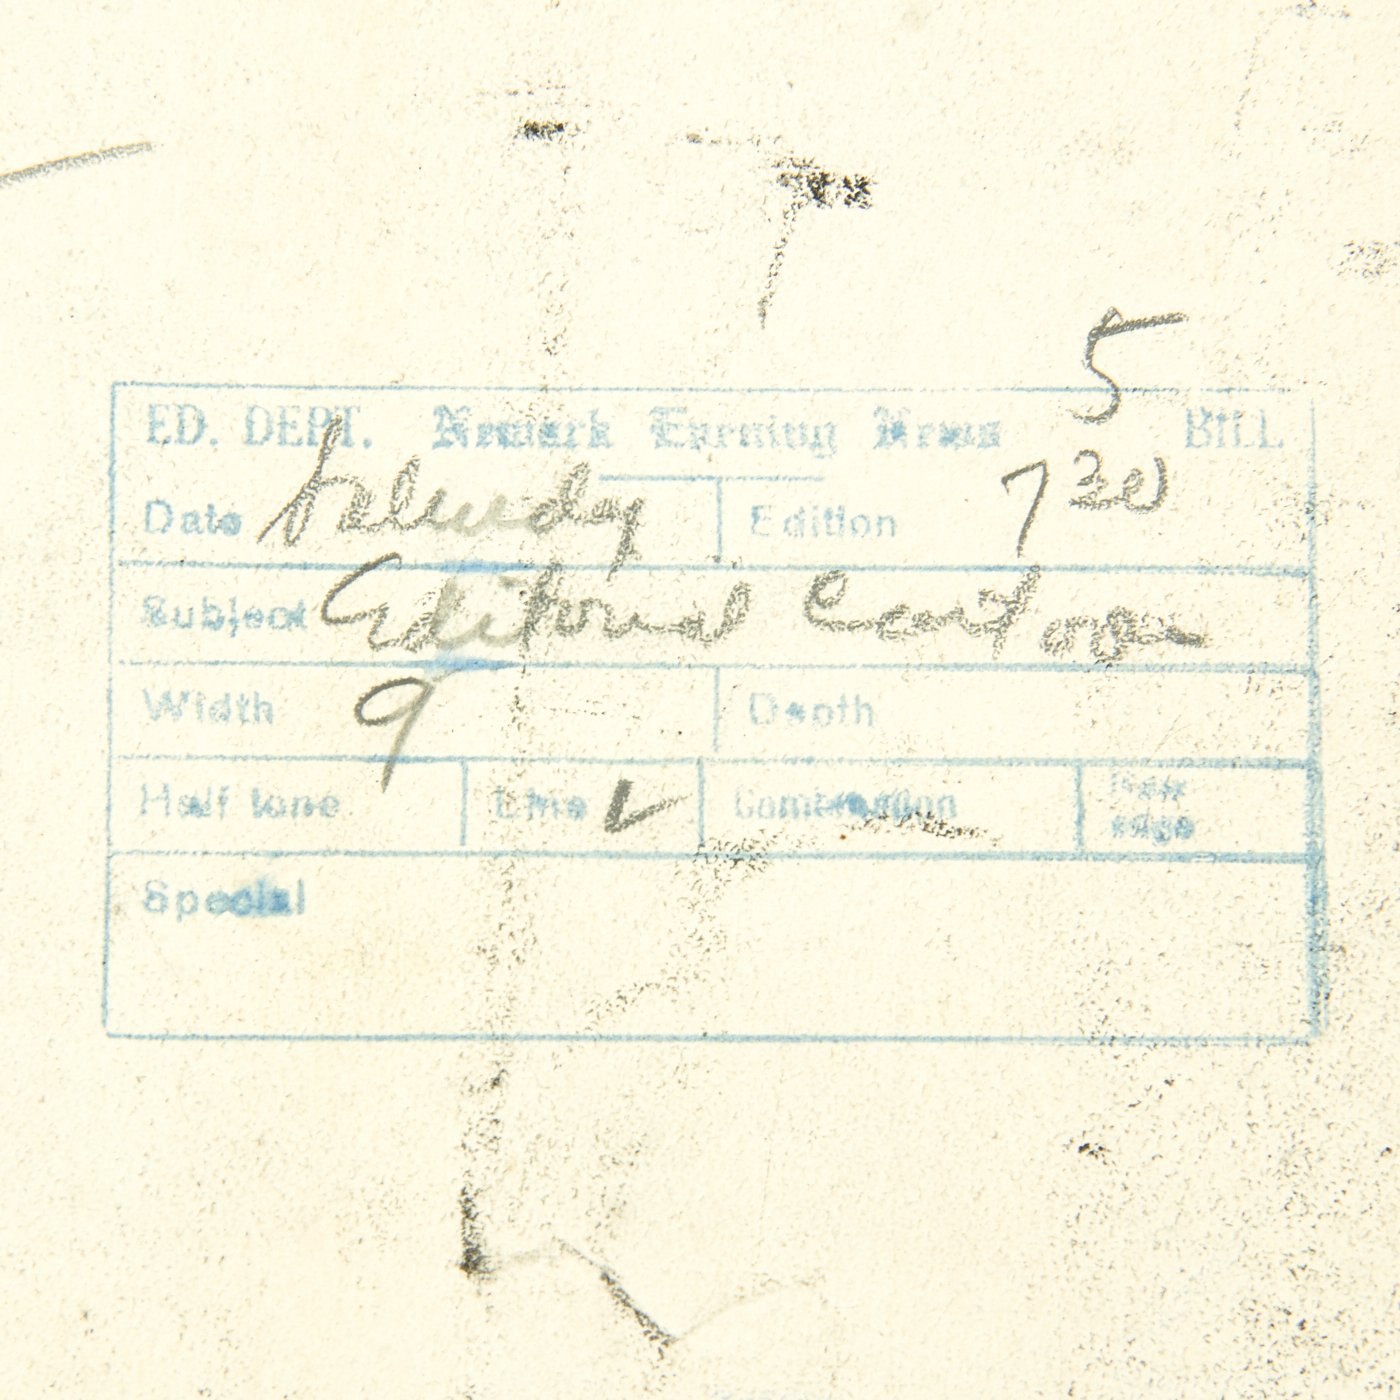 5
ED. DEPT. Newark Evening News BILL
Date Edition 7 30
Subject Editorial Cartoon
Width 9 Depth
Half tone Line ✓ Combination New edge
Special